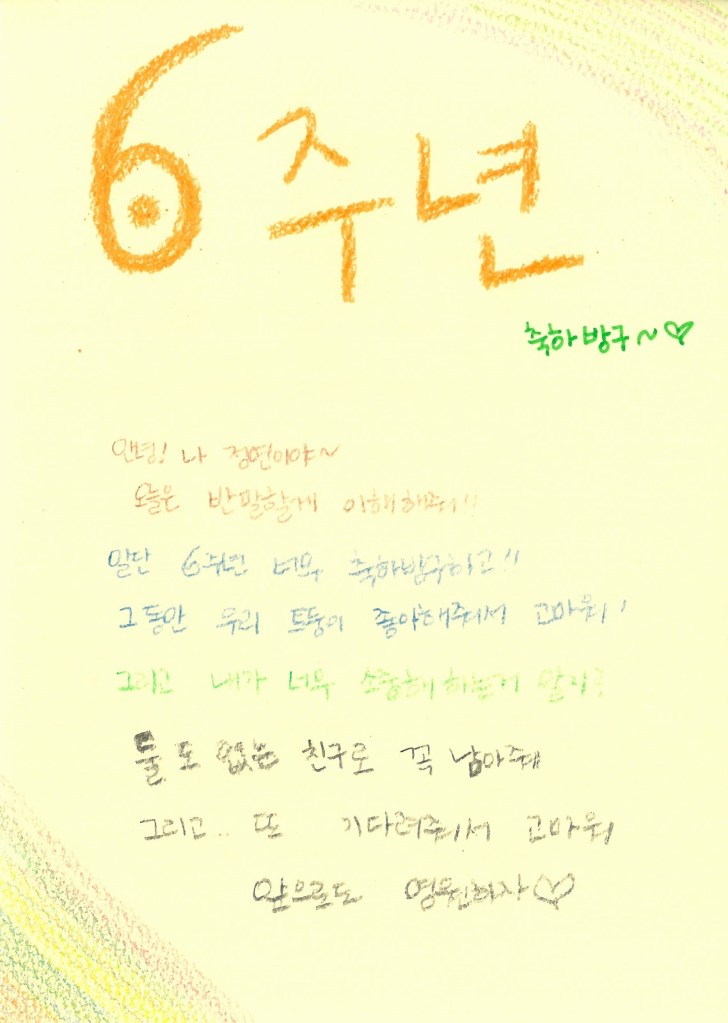 6주년
축하방구~♡
안녕! 나 정연이야~
오늘은 반말할게 이해해줘!!
일단 6주년 너무 축하방구하고!!
그동안 우리 트둥이 좋아해줘서 고마워!
그리고 내가 너무 소중해 하는거 알지?
둘도 없는 친구로 꼭 남아줘
그리고.. 또 기다려줘서 고마워
앞으로도 영원하자♡